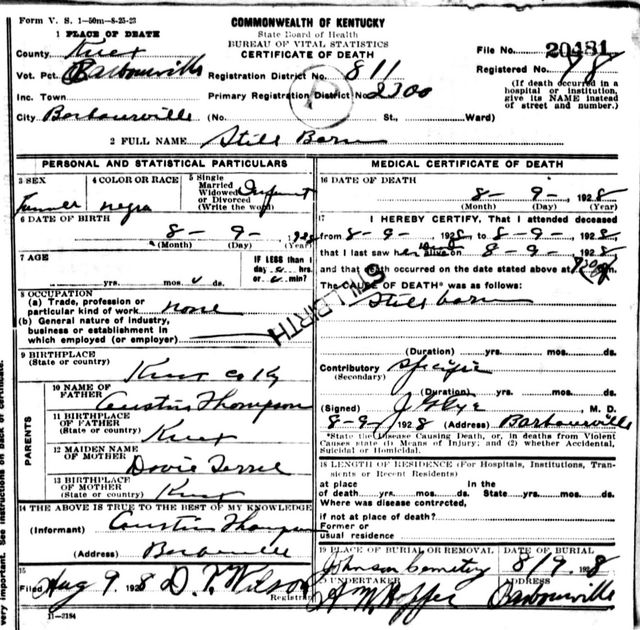 Form V. S. 1-50m-8-25-23
COMMONWEALTH OF KENTUCKY
State Board of Health
BUREAU OF VITAL STATISTICS
CERTIFICATE OF DEATH
1 PLACE OF DEATH
County Knox
File No. 20481
Vot. Pct. Barbourville
Registration District No. 811
Registered No. 78
Inc. Town
Primary Registration District No. 2300
(If death occurred in a hospital or institution, give its NAME instead of street and number.)
City Barbourville (No. St., Ward)
2 FULL NAME Still Born
PERSONAL AND STATISTICAL PARTICULARS
3 SEX
4 COLOR OR RACE negro
5 Single Married Widowed or Divorced (Write the word) Infant
6 DATE OF BIRTH
8-9-1928
(Month) (Day) (Year)
7 AGE
IF LESS than 1 day hrs. or min?
yrs. mos.
8 OCCUPATION
(a) Trade, profession or particular kind of work none
(b) General nature of industry, business or establishment in which employed (or employer)
9 BIRTHPLACE (State or country) Knox Co Ky
PARENTS
10 NAME OF FATHER Thompson
11 BIRTHPLACE OF FATHER (State or country) Knox
12 MAIDEN NAME OF MOTHER Dovie
13 BIRTHPLACE OF MOTHER (State or country) Knox
14 THE ABOVE IS TRUE TO THE BEST OF MY KNOWLEDGE
(Informant) Thompson
(Address) Barbourville
15
Filed Aug 9 1928 D. T. Wilson
Registrar
11-2184
MEDICAL CERTIFICATE OF DEATH
16 DATE OF DEATH
8-9-1928
(Month) (Day) (Year)
17 I HEREBY CERTIFY, That I attended deceased
from 8-9-1928 to 8-9-1928
that I last saw h alive on 8-9-1928
and that death occurred on the date stated above at m.
The CAUSE OF DEATH* was as follows:
Still born
STILLBIRTH
(Duration) yrs. mos. ds.
Contributory (Secondary) Specific
(Duration) yrs. mos. ds.
(Signed) M. D.
8-9-1928 (Address) Barbourville
*State the Disease Causing Death, or, in deaths from Violent Causes state (1) Means of Injury; and (2) whether Accidental, Suicidal or Homicidal.
18 LENGTH OF RESIDENCE (For Hospitals, Institutions, Transients or Recent Residents)
at place of death yrs. mos. ds. In the State yrs. mos. ds.
Where was disease contrcted,
if not at place of death?
Former or usual residence
19 PLACE OF BURIAL OR REMOVAL
Johnson Cemetery
DATE OF BURIAL
8/9 1928
20 UNDERTAKER
A. M. Hopper
ADDRESS
Barbourville
very important. See instructions on back of certificate.